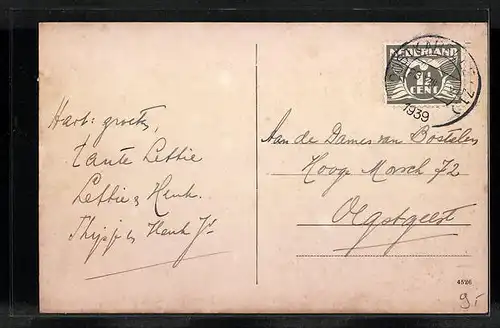 Hart: groeten,
tante Lettie
Lettie & Henk.
Henk Jr
NEDERLAND
1½
CENT
1939
Aan de Dames van Bostelen
Hooge Morsch 72
Oegstgeest
4526
9.-